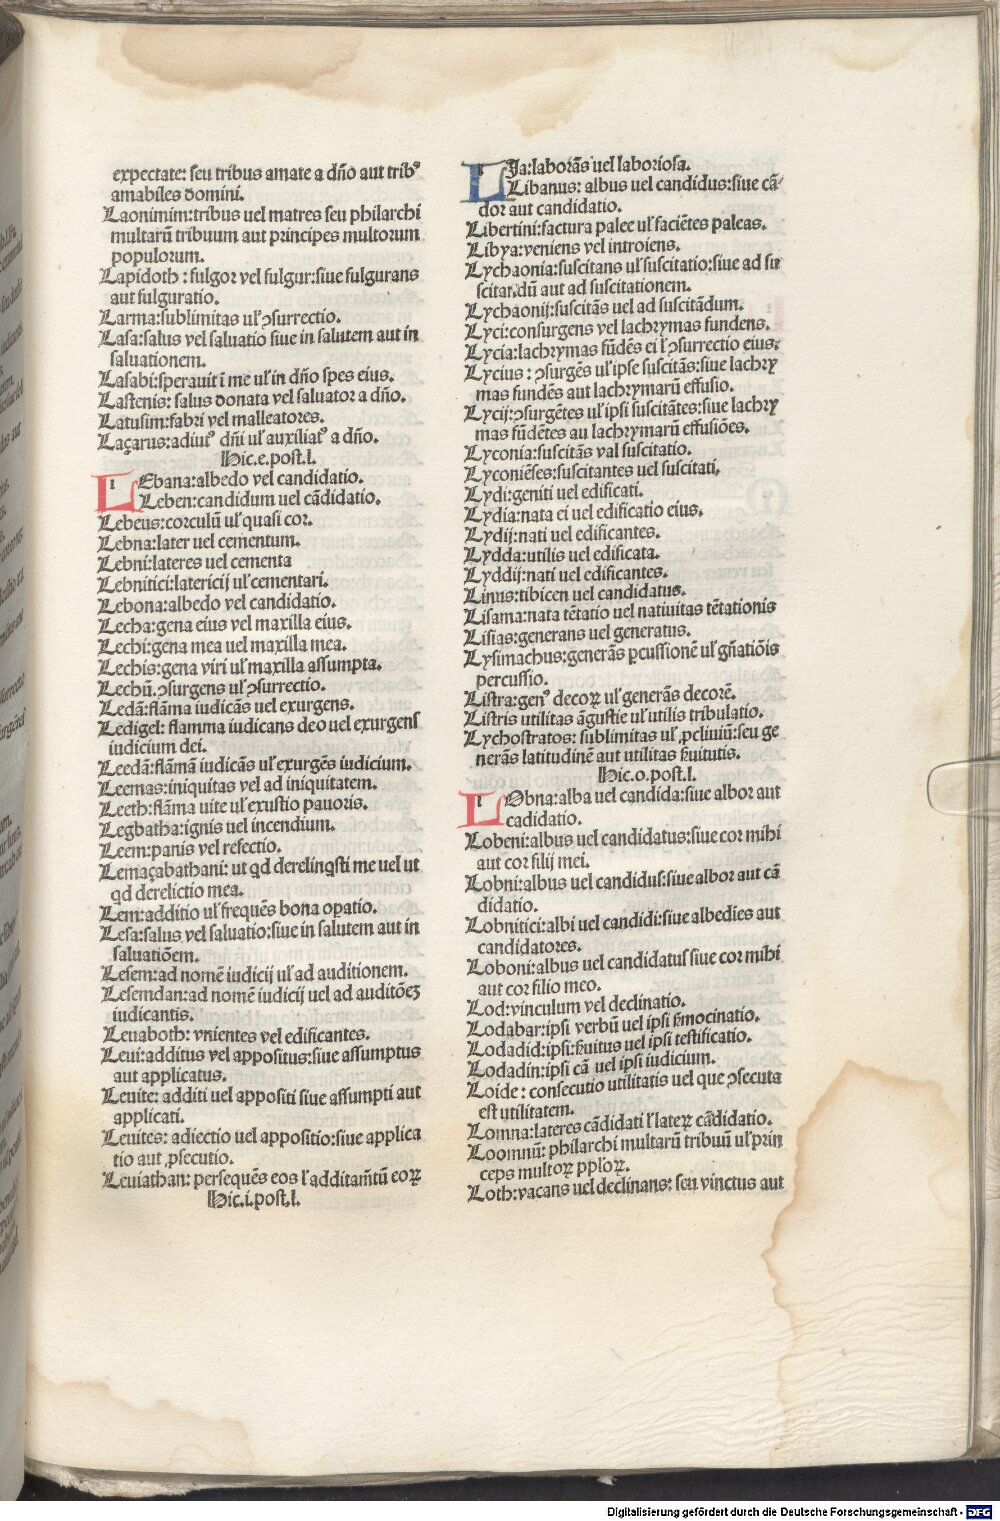 expectate: seu tribus amate a dño aut tribꝰ
amabiles domini.
Laonimim:tribus uel matres seu philarchi
multarū tribuum aut principes multorum
populorum.
Lapidoth : fulgor vel fulgur:siue fulgurans
aut fulguratio.
Larma:sublimitas ul' ꝯsurrectio.
Lasa:salus vel saluatio siue in salutem aut in
saluationem.
Lasabi:sperauit ī me ul' in dño spes eius.
Lastenis: salus donata vel saluator a dño.
Latusim:fabri vel malleatores.
Laçarus:adiutꝰ dñi ul' auxiliatꝰ a dño.
Hic.e.post.l.
LEbana:albedo vel candidatio.
Leben:candidum uel cādidatio.
Lebeus:corculū ul' quasi cor.
Lebna:later uel cementum.
Lebni:lateres uel cementa
Lebnitici:latericij ul' cementari.
Lebona:albedo vel candidatio.
Lecha:gena eius vel maxilla eius.
Lechi:gena mea uel maxilla mea.
Lechis:gena viri ul' maxilla assumpta.
Lechū.ꝯsurgens ul' ꝯsurrectio.
Ledā:flāma iudicās uel exurgens.
Ledigel: flamma iudicans deo uel exurgens
iudicium dei.
Leedā:flāmā iudicās ul' exurgēs iudicium.
Leemas:iniquitas vel ad iniquitatem.
Leeth:flāma uite ul' exustio pauoris.
Legbatha:ignis uel incendium.
Leem:panis vel refectio.
Lemaçabathani: ut qd derelinqsti me uel ut
qd derelictio mea.
Lem:additio ul' frequēs bona opatio.
Lesa:salus vel saluatio:siue in salutem aut in
saluatiōem.
Lesem:ad nomē iudicij ul' ad auditionem.
Lesemdan:ad nomē iudicij uel ad auditōeꝫ
iudicantis.
Leuaboth: vnientes vel edificantes.
Leui:additus vel appositus:siue assumptus
aut applicatus.
Leuite: additi uel appositi siue assumpti aut
applicati.
Leuites: adiectio uel appositio:siue applica
tio aut ꝓsecutio.
Leuiathan: persequēs eos l' additam̄tū eoꝝ
Hic.i.post.l.
LIa:laborās uel laboriosa.
Libanus: albus uel candidus:siue cā
dor aut candidatio.
Libertini:factura palee ul' faciētes paleas.
Libya:veniens vel introiens.
Lychaonia:suscitans ul' suscitatio:siue ad su
scitan.dū aut ad suscitationem.
Lychaonij:suscitās uel ad suscitādum.
Lyci:consurgens vel lachrymas fundens.
Lycia:lachrymas fūdēs ei l' ꝯsurrectio eius.
Lycius : ꝯsurgēs ul' ipse suscitās:siue lachry
mas fundēs aut lachrymarū effusio.
Lycij:ꝯsurgētes ul' ipsi suscitātes:siue lachry
mas fūdētes au lachrymarū effusiōes.
Lyconia:suscitās val suscitatio.
Lyconiēses:suscitantes uel suscitati,
Lydi:geniti uel edificati.
Lydia:nata ei vel edificatio eius.
Lydij:nati uel edificantes.
Lydda:utilis vel edificata.
Lyddij:nati uel edificantes.
Linus:tibicen uel candidatus.
Lisama:nata tētatio uel natiuitas tētationis
Lisias:generans uel generatus.
Lysimachus:generās ꝑcussionē ul' gñatiōis
percussio.
Listra:genꝰ decoꝝ ul' generās decorē.
Listris utilitas āgustie ul' utilis tribulatio.
Lychostratos: sublimitas ul' ꝓcliuiū:seu ge
nerās latitudinē aut utilitas ẜuitutis.
Hic.o.post.l.
LObna:alba uel candida:siue albor aut
cādidatio.
Lobeni:albus uel candidatus:siue cor mihi
aut cor filij mei.
Lobni:albus uel candidus:siue albor aut cā
didatio.
Lobnitici:albi uel candidi:siue albedies aut
candidatores.
Loboni:albus uel candidatus siue cor mihi
aut cor filio meo.
Lod:vinculum vel declinatio.
Lodabar:ipsi verbū uel ipsi ẜmocinatio.
Lodadid:ipsi:ẜuitus uel ipsi testificatio.
Lodadin:ipsi cā uel ipsi iudicium.
Loide : consecutio utilitatis uel que ꝯsecuta
est utilitatem.
Lomna:lateres cādidati l' lateꝝ cādidatio.
Loomnū: philarchi multarū tribuū ul' prin
ceps multoꝝ pploꝝ.
Loth:vacans uel declinans: seu vinctus aut
Digitalisierung gefördert durch die Deutsche Forschungsgemeinschaft - DFG